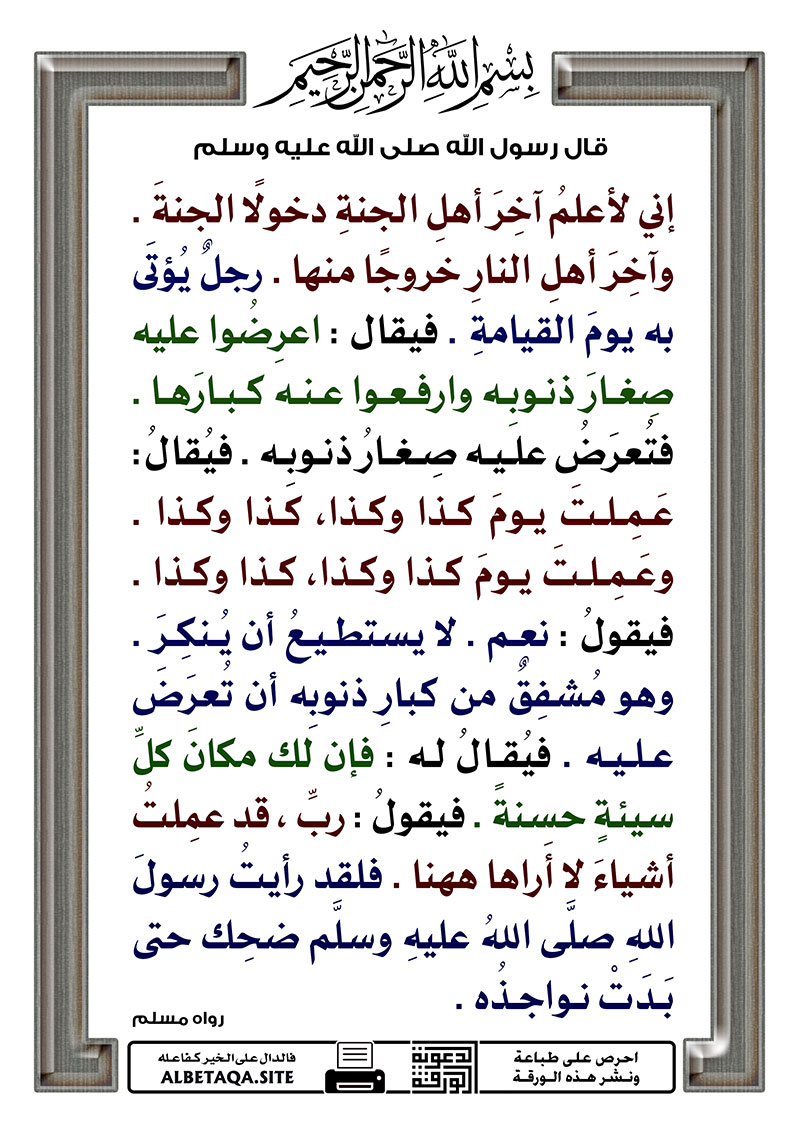 بِسْمِ اللَّهِ الرَّحْمَنِ الرَّحِيمِ
قال رسول الله صلى الله عليه وسلم
إني لأعلمُ آخِرَ أهلِ الجنةِ دخولًا الجنةَ .
وآخِرَ أهلِ النارِ خروجًا منها . رجلٌ يُؤتَى
به يومَ القيامةِ . فيقال : اعرِضُوا عليه
صِغارَ ذنوبِه وارفعوا عنه كبارَها .
فتُعرَضُ عليه صِغارُ ذنوبه . فيُقالُ :
عَمِلتَ يومَ كذا وكذا، كَذا وكذا .
وعَمِلتَ يومَ كذا وكذا، كذا وكذا .
فيقولُ : نعم . لا يستطيعُ أن يُنكِرَ .
وهو مُشفِقٌ من كبارِ ذنوبِه أن تُعرَضَ
عليه . فيُقالُ له : فإن لك مكانَ كلِّ
سيئةٍ حسنةً . فيقولُ : ربِّ ، قد عمِلتُ
أشياءَ لا أَراها ههنا . فلقد رأيتُ رسولَ
اللهِ صلَّى اللهُ عليهِ وسلَّم ضحِك حتى
بَدَتْ نواجذُه .
رواه مسلم
احرص على طباعة
ونشر هذه الورقة
الورقة الدعوية
فالدال على الخير كفاعله
ALBETAQA.SITE